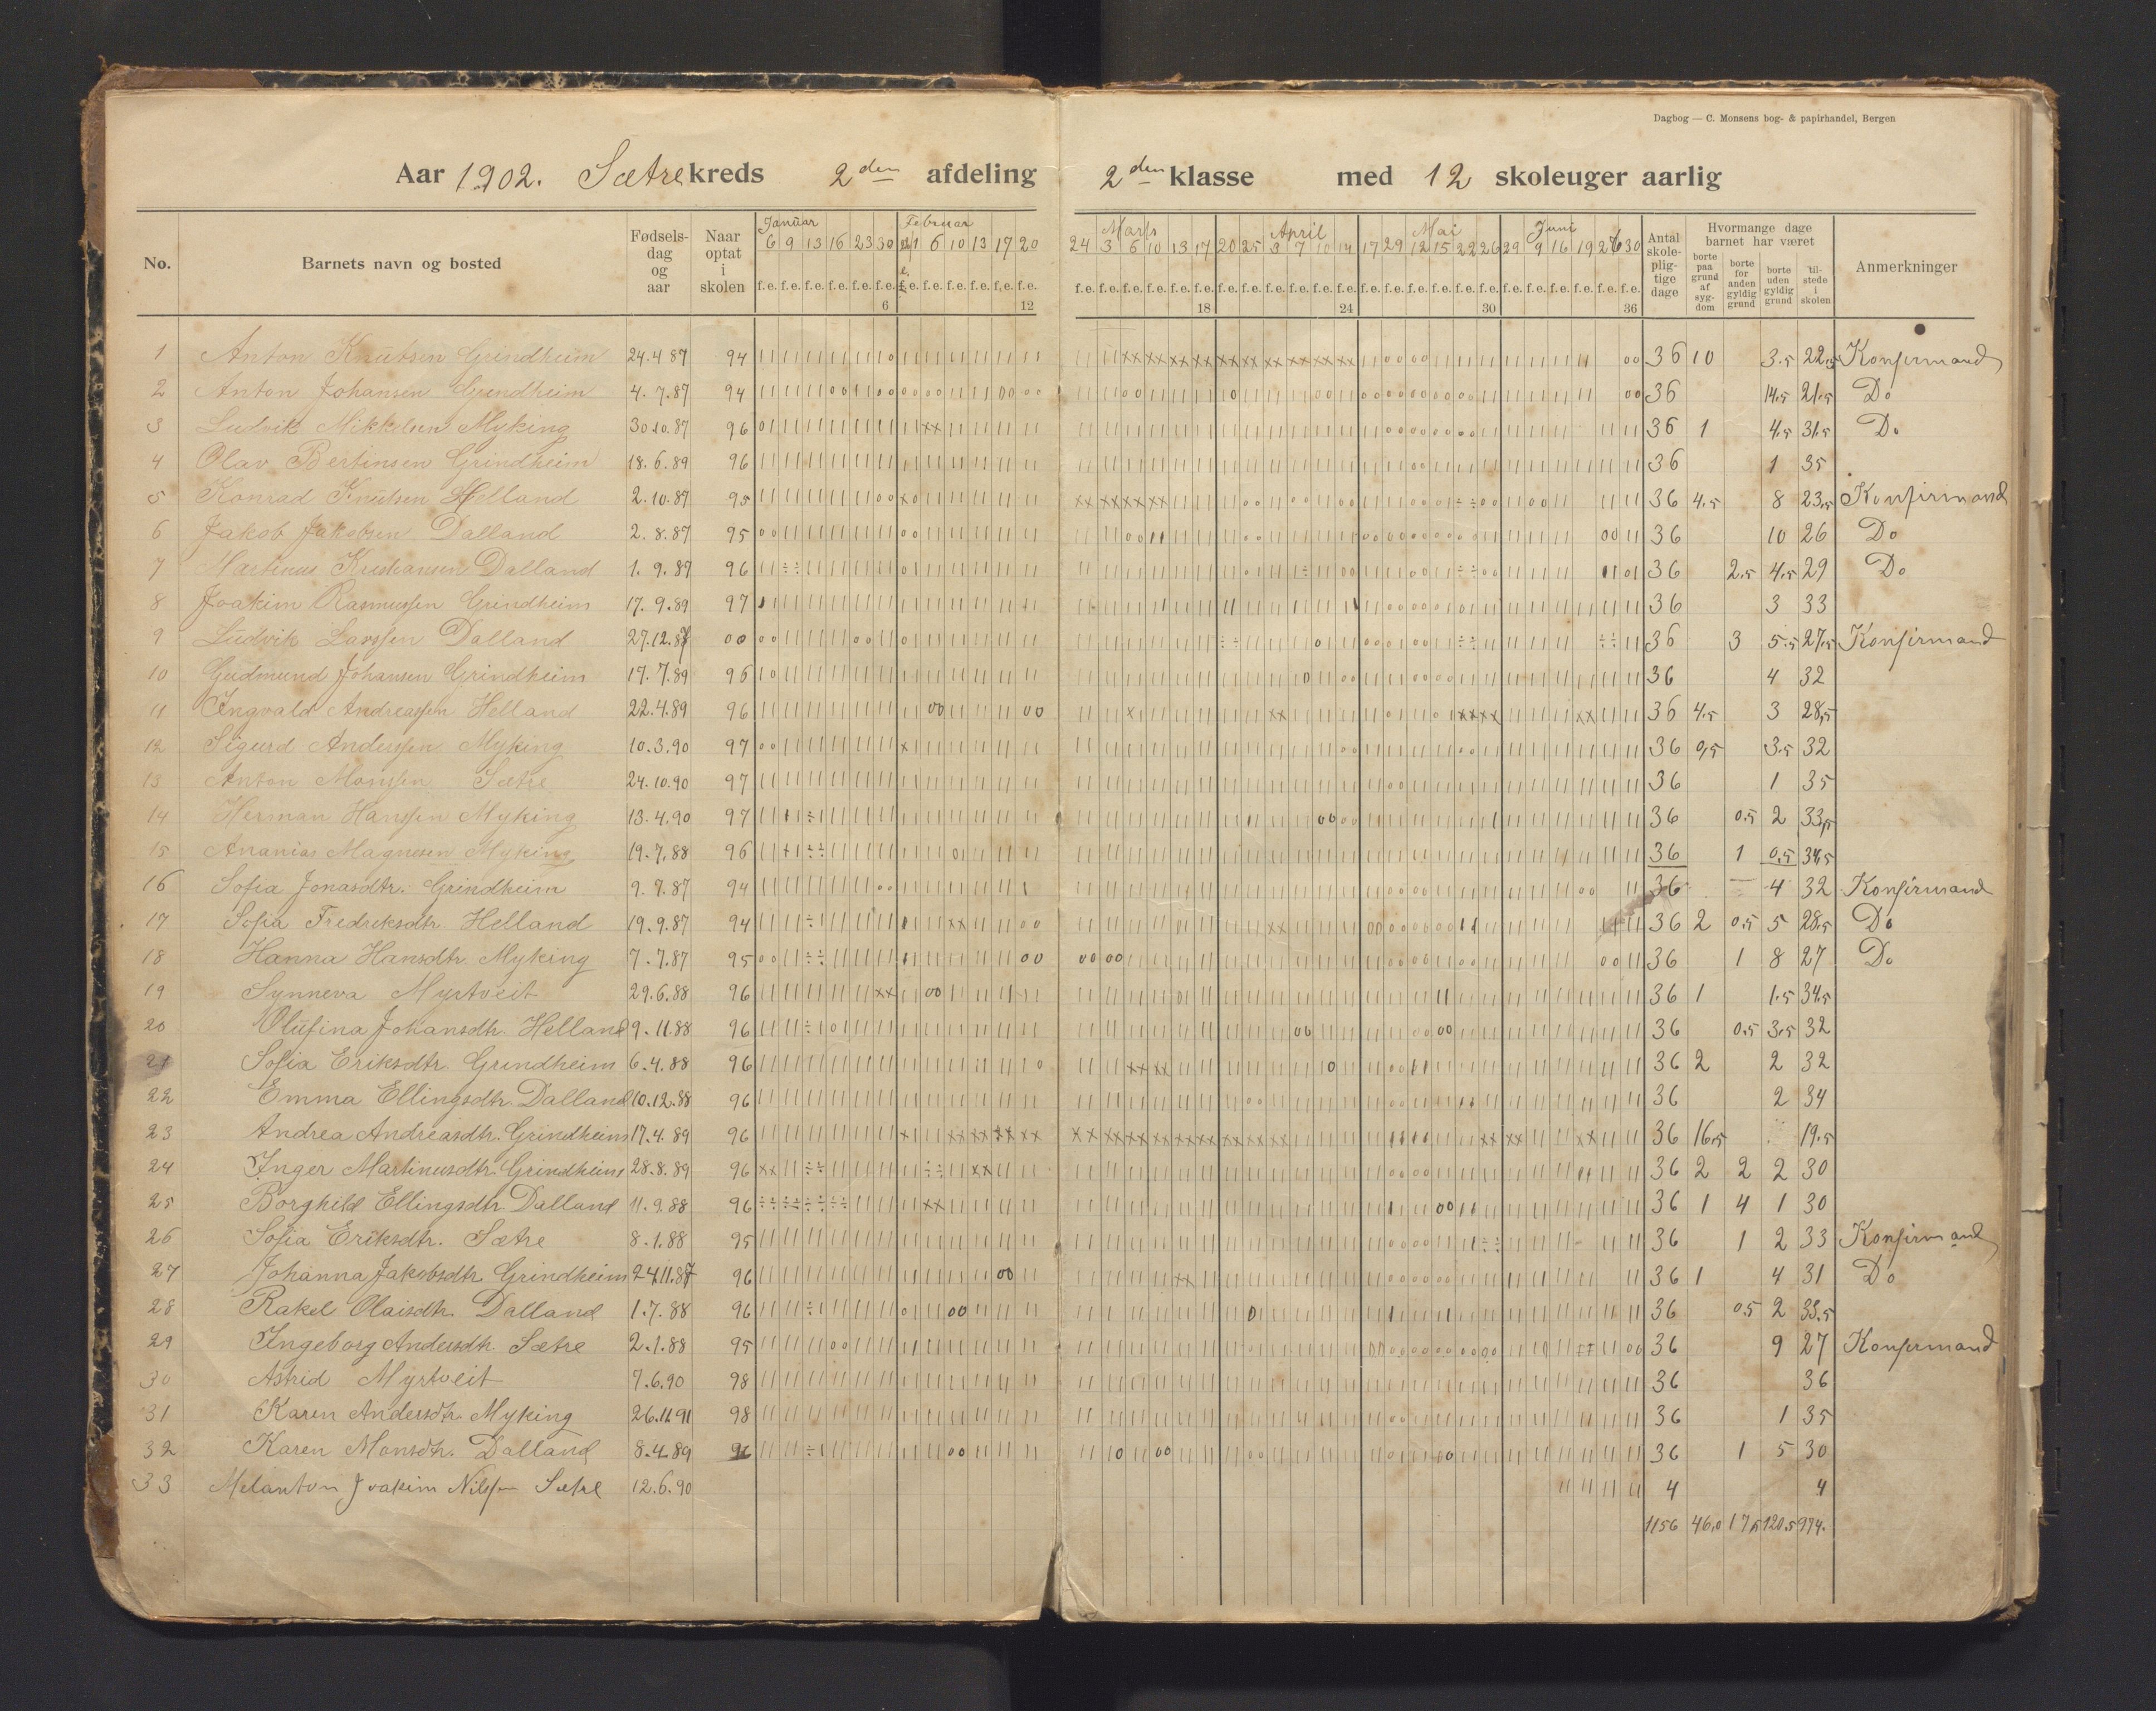 Dagbog — C. Monsens bog- & papirhandel, Bergen
Aar 1902. Sætre kreds 2den afdeling 2den klasse med 12 skoleuger aarlig
Januar Februar Marts April Mai Juni
No. Barnets navn og bosted Fødselsdag og aar Naar optat i skolen 6 9 13 16 23 30 1 6 10 13 17 20 24 3 6 10 13 17 20 25 3 7 10 14 17 29 12 15 22 26 29 9 16 19 26 30 Antal skolepligtige dage Hvormange dage barnet har været borte paa grund af sygdom borte for anden gyldig grund borte uden gyldig grund tilstede i skolen Anmerkninger
f.e. f.e. f.e. f.e. f.e. f.e. f.e. f.e. f.e. f.e. f.e. f.e. f.e. f.e. f.e. f.e. f.e. f.e. f.e. f.e. f.e. f.e. f.e. f.e. f.e. f.e. f.e. f.e. f.e. f.e. f.e. f.e. f.e. f.e. f.e. f.e.
6 12 18 24 30 36
1 Anton Knutsen Grindheim 24.4 87 94 36 10 3.5 22.5 Konfirmand
2 Anton Johansen Grindheim 4.7.87 94 36 14.5 21.5 Do
3 Ludvik Mikkelsen Myking 30.10.87 96 36 1 4.5 31.5 Do
4 Olav Bertinsen Grindheim 18.6.89 96 36 1 35
5 Konrad Knutsen Helland 2.10.87 95 36 4.5 8 23.5 Konfirmand
6 Jakob Jakobsen Dalland 2.8.87 95 36 10 26 Do
7 Martinus Kristiansen Dalland 1.9.87 96 36 2.5 4.5 29 Do
8 Joakim Rasmussen Grindheim 17.9.89 97 36 3 33
9 Ludvik Larssen Dalland 27.12.87 00 36 3 5.5 27.5 Konfirmand
10 Gudmund Johansen Grindheim 17.7.89 96 36 4 32
11 Ingvald Andreassen Helland 22.4.89 96 36 4.5 3 28,5
12 Sigurd Anderssen Myking 10.3.90 97 36 0,5 3.5 32
13 Anton Monssen Sætre 24.10.90 97 36 1 35
14 Herman Hanssen Myking 13.4.90 97 36 0.5 2 33,5
15 Ananias Magnesen Myking 19.7.88 96 36 1 0.5 34,5
16 Sofia Jonasdtr. Grindheim 9.9.87 94 36 4 32 Konfirmand
17 Sofia Fredriksdtr. Helland 19.9.87 94 36 2 0.5 5 28.5 Do
18 Hanna Hansdtr. Myking 7.7.87 95 36 1 8 27 Do
19 Synneva Myrtveit 29.6.88 96 36 1 1.5 34.5
20 Olufina Johansdtr. Helland 9.11.88 96 36 0.5 3.5 32
21 Sofia Eriksdtr. Grindheim 6.4.88 96 36 2 2 32
22 Emma Ellingsdtr. Dalland 10.12.88 96 36 2 34
23 Andrea Andreasdtr. Grindheim 17.4.89 96 36 16.5 19.5
24 Inger Martinusdtr. Grindheim 28.8.89 96 36 2 2 2 30
25 Borghild Ellingsdtr. Dalland 11.9.88 96 36 1 4 1 30
26 Sofia Eriksdtr. Sætre 8.1.88 95 36 1 2 33 Konfirmand
27 Johanna Jakobsdtr. Grindheim 24.11.87 96 36 1 4 31 Do
28 Rakel Olaisdtr. Dalland 1.7.88 96 36 0.5 2 33.5
29 Ingeborg Andersdtr. Sætre 2.1.88 95 36 9 27 Konfirmand
30 Astrid Myrtveit 7.6.90 98 36 36
31 Karen Andersdtr. Myking 26.11.91 98 36 1 35
32 Karen Monsdtr. Dalland 8.4.89 96 36 1 5 30
33 Melanton Joakim Nilssen Sætre 12.6.90 4 4
1156 46,0 17,5 120.5 974.